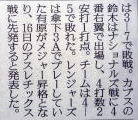 は4―7で敗戦。カブスの
鈴木はナショナルズ戦に4
番右翼で出場し、4打数2
安打1打点。チームは4―
5で敗れた。レンジャーズ
は傘下3Aでプレーしてい
た有原がメジャー昇格とな
り、16日のアスレチックス
戦に先発すると発表した。